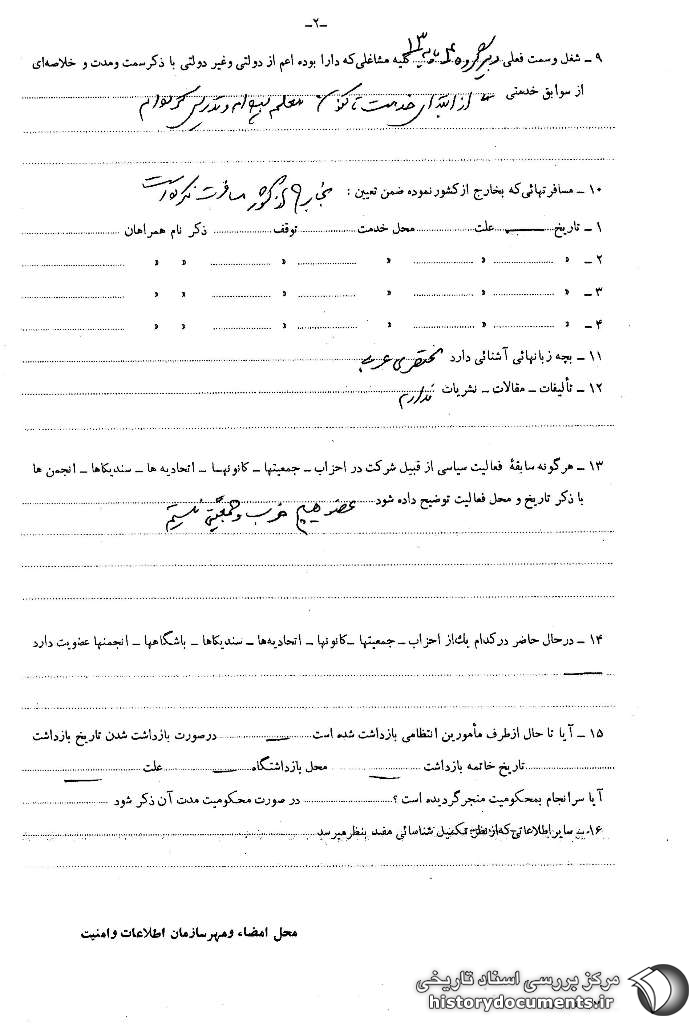 -۲-
۹ - شغل وسمت فعلی دبیر گروه ۴ پایه ۱۳ کلیه مشاغلی که دارا بوده اعم از دولتی وغیر دولتی با ذکر سمت ومدت و خلاصه‌ای
از سوابق خدمتی از ابتدای خدمت تا کنون معلم بوده‌ام و تدریس کرده‌ام
۱۰ - مسافرتهائی که بخارج از کشور نموده ضمن تعیین : بخارج از کشور مسافرت نکرده است
۱ - تاریخ علت محل خدمت توقف ذکر نام همراهان
۲ - » » » » » »
۳ - » » » » » »
۴ - » » » » » »
۱۱ - بچه زبانهائی آشنائی دارد مختصری عربی
۱۲ - تألیفات - مقالات - نشریات ندارم
۱۳ - هرگونه سابقهٔ فعالیت سیاسی از قبیل شرکت در احزاب - جمعیتها - کانونها - اتحادیه ها - سندیکاها - انجمن ها
با ذکر تاریخ و محل فعالیت توضیح داده شود عضو هیچ حزب و جمعیتی نیستم
۱۴ - درحال حاضر درکدام یک از احزاب - جمعیتها - کانونها - اتحادیه‌ها - سندیکاها - باشگاهها - انجمنها عضویت دارد
۱۵ - آیا تا حال ازطرف مأمورین انتظامی بازداشت شده است درصورت بازداشت شدن تاریخ بازداشت
تاریخ خاتمه بازداشت محل بازداشتگاه علت
آیا سرانجام بمحکومیت منجر گردیده است ؟ در صورت محکومیت مدت آن ذکر شود
۱۶ - سایر اطلاعاتی که از نظر تکمیل شناسائی مفید بنظر میرسد
محل امضاء ومهر سازمان اطلاعات وامنیت
مرکز بررسی اسناد تاریخی
historydocuments.ir